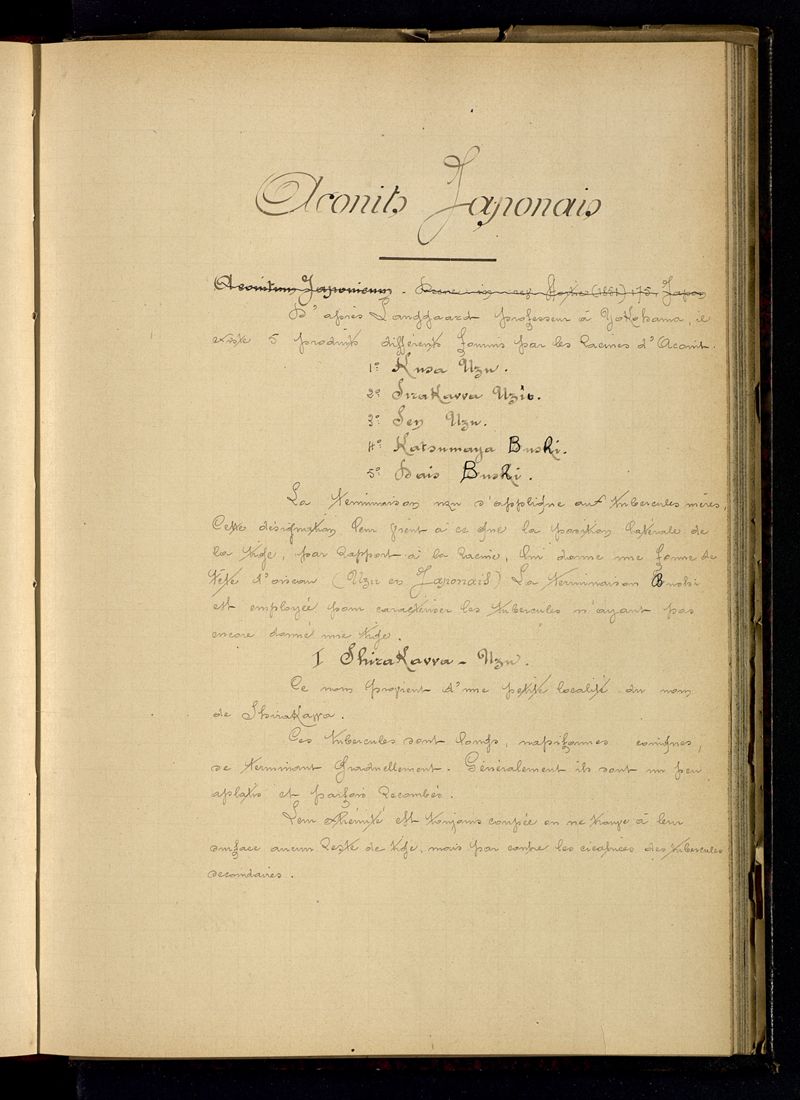 Aconits Japonais
Aconitum Japonicum. (1881) 175. Japon
D'après Langgaard professeur à Yokohama, il
existe 5 produits différents fournis par les Racines d'Aconit.
1º Kusa Uzu.
2º SiraKavva Uzu.
3º Sen Uzu.
4º Katsumaya Bushi.
5º Dais Bushi.
La terminaison uzu s'applique aux tubercules mères,
Cette désignation leur vient à ce que la position latérale de
la tige, par rapport à la Racine, lui donne une forme de
tête d'oiseau (Uzu en Japonais) La terminaison Bushi
est employée pour caractériser les tubercules n'ayant pas
encore donné une tige.
I ShiraKavva - Uzu.
Ce nom provient d'une petite localité du nom
de ShiraKavva.
Ces tubercules sont longs, napiformes coniques,
se terminant graduellement. Généralement ils sont un peu
aplatis et parfois Recombés.
Leur extrémité est toujours coupée on ne trouve à leur
surface aucun Reste de tige, mais par contre les cicatrices des tubercules
secondaires.